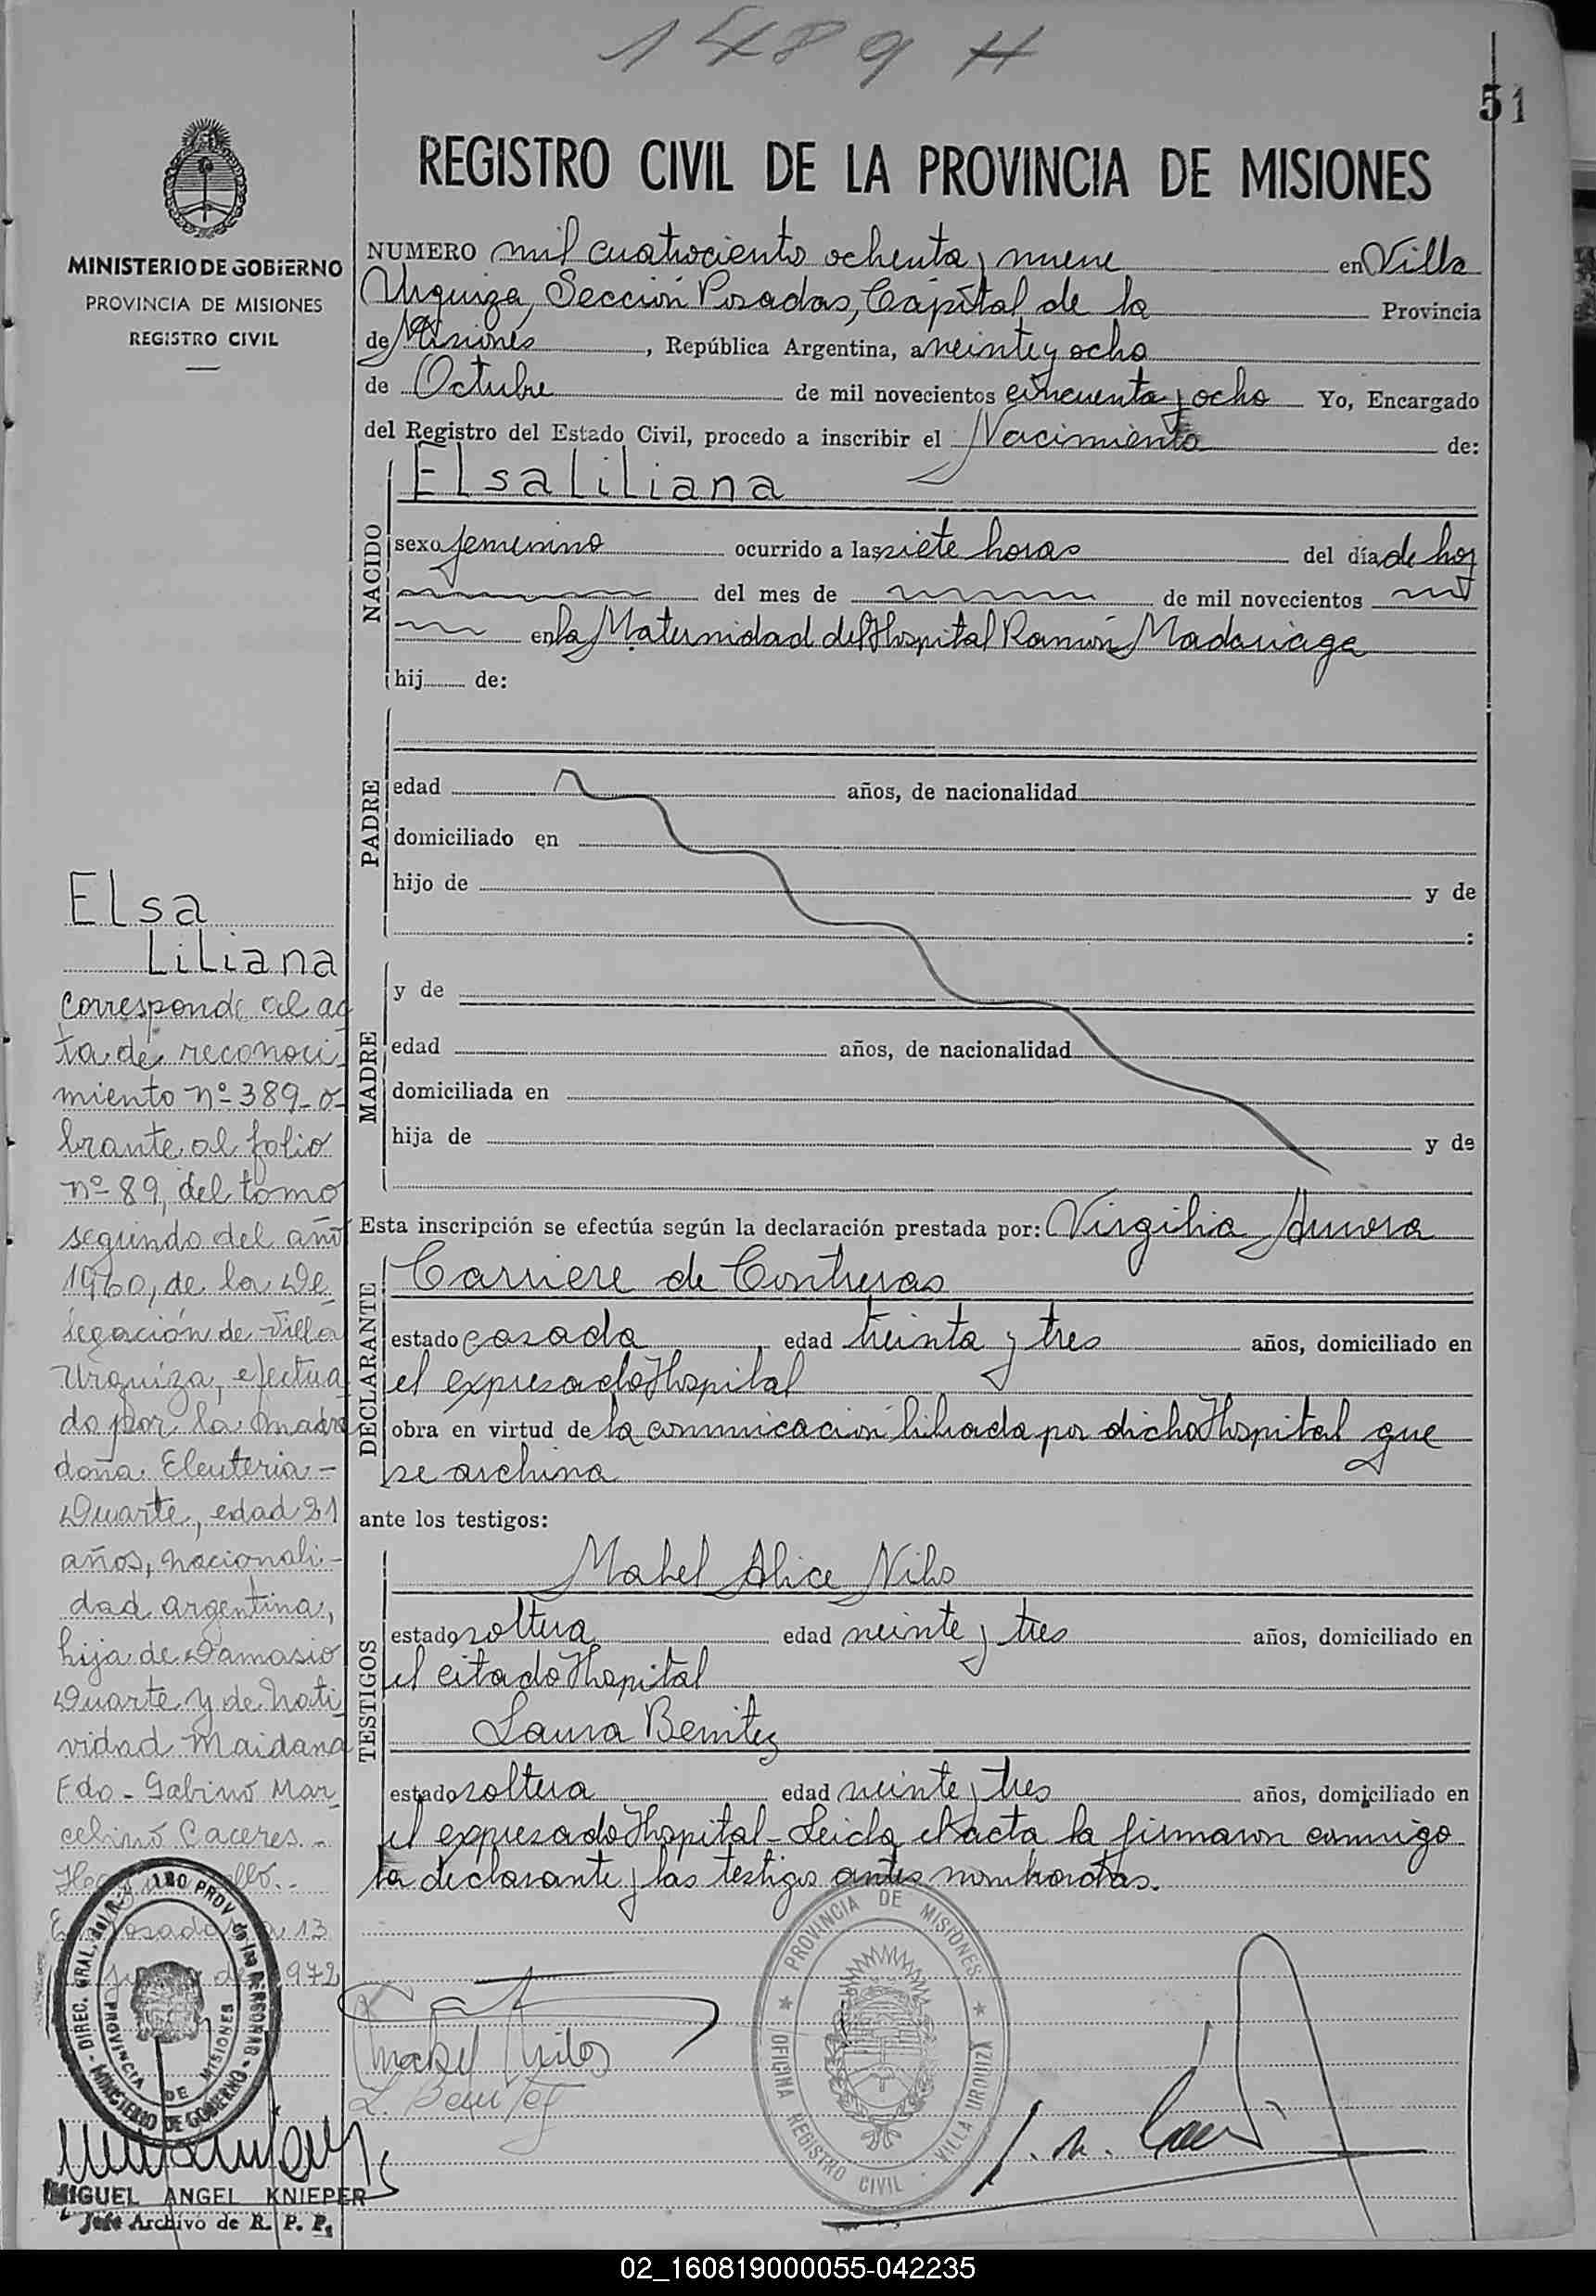 1489 H
51
MINISTERIO DE GOBIERNO
PROVINCIA DE MISIONES
REGISTRO CIVIL
REGISTRO CIVIL DE LA PROVINCIA DE MISIONES
NUMERO mil cuatrociento ochenta y nueve en Villa
Urquiza, Sección Posadas, Capital de la Provincia
de Misiones, República Argentina, a veinte y ocho
de Octubre de mil novecientos cincuenta y ocho Yo, Encargado
del Registro del Estado Civil, procedo a inscribir el Nacimiento de:
NACIDO
Elsa Liliana
sexo femenino ocurrido a las siete horas del día de hoy
del mes de de mil novecientos
en la Maternidad del Hospital Ramón Madariaga
hij de:
PADRE
edad años, de nacionalidad
domiciliado en
hijo de y de
:
MADRE
y de
edad años, de nacionalidad
domiciliada en
hija de y de
Esta inscripción se efectúa según la declaración prestada por: Virgilia Aurora
DECLARANTE
Carriere de Contreras
estado casada, edad treinta y tres años, domiciliado en
el expresado Hospital
obra en virtud de la comunicación librada por dicho Hospital que
se archiva
ante los testigos:
TESTIGOS
Mabel Alice Nilo
estado soltera edad veinte y tres años, domiciliado en
el citado Hospital
Laura Benitez
estado soltera edad veinte y tres años, domiciliado en
el expresado Hospital - Leida el acta la firmaron conmigo
la declarante y las testigos antes nombradas.
Elsa
Liliana
Corresponde al ac
ta de reconoci
miento nº 389 o-
brante al folio
nº 89, del tomo
segundo del año
1960, de la De
legación de Villa
Urquiza, efectua
do por la madre
doña Eleuteria -
Duarte, edad 21
años, nacionali-
dad argentina,
hija de Damasio
Duarte y de Nati
vidad Maidana
Fdo - Gabino Mar
celino Caceres -
Hay sello.-
Posadas 13
de 1972
DIREC. GRAL. del REGISTRO PROV de las PERSONAS - MINISTERIO DE GOBIERNO -
PROVINCIA DE MISIONES
Mabel Nilo
L. Benitez
PROVINCIA DE MISIONES
OFICINA REGISTRO CIVIL - VILLA URQUIZA
MIGUEL ANGEL KNIEPER
Jefe Archivo de R. P. P.
02_160819000055-042235